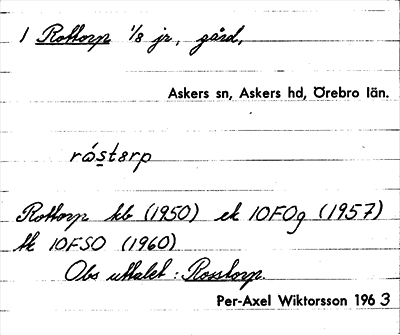 1 Rottorp 1/8 jr, gård,
Askers sn, Askers hd, Örebro län.
råsterp
Rottorp kb (1950) ek 10FOg (1957)
tk 10FSO (1960)
Obs uttalet: Rosstorp.
Per-Axel Wiktorsson 1963